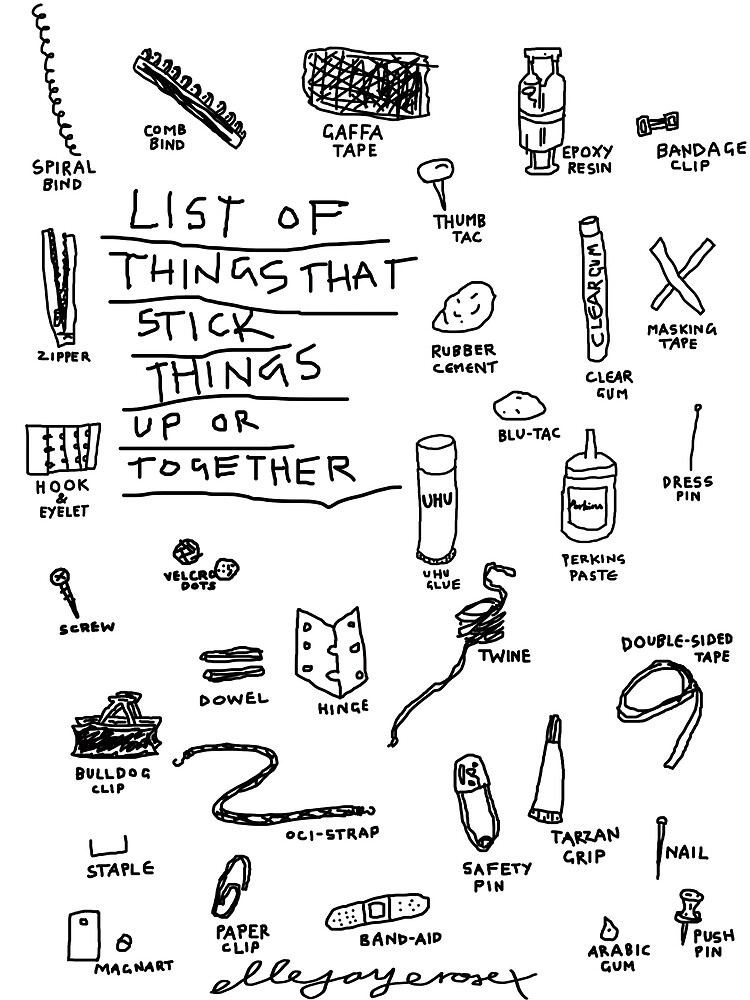 SPIRAL
BIND
COMB
BIND
GAFFA
TAPE
EPOXY
RESIN
BANDAGE
CLIP
THUMB
TAC
LIST OF
THINGS THAT
STICK
THINGS
UP OR
TOGETHER
ZIPPER
RUBBER
CEMENT
CLEAR GUM
CLEAR
GUM
MASKING
TAPE
BLU-TAC
HOOK
&
EYELET
UHU
UHU
GLUE
Perkins
PERKING
PASTE
DRESS
PIN
VELCRO
DOTS
SCREW
DOWEL
HINGE
TWINE
DOUBLE-SIDED
TAPE
BULLDOG
CLIP
OCI-STRAP
SAFETY
PIN
TARZAN
GRIP
NAIL
STAPLE
PAPER
CLIP
BAND-AID
ARABIC
GUM
PUSH
PIN
MAGNART
ellejayerosex